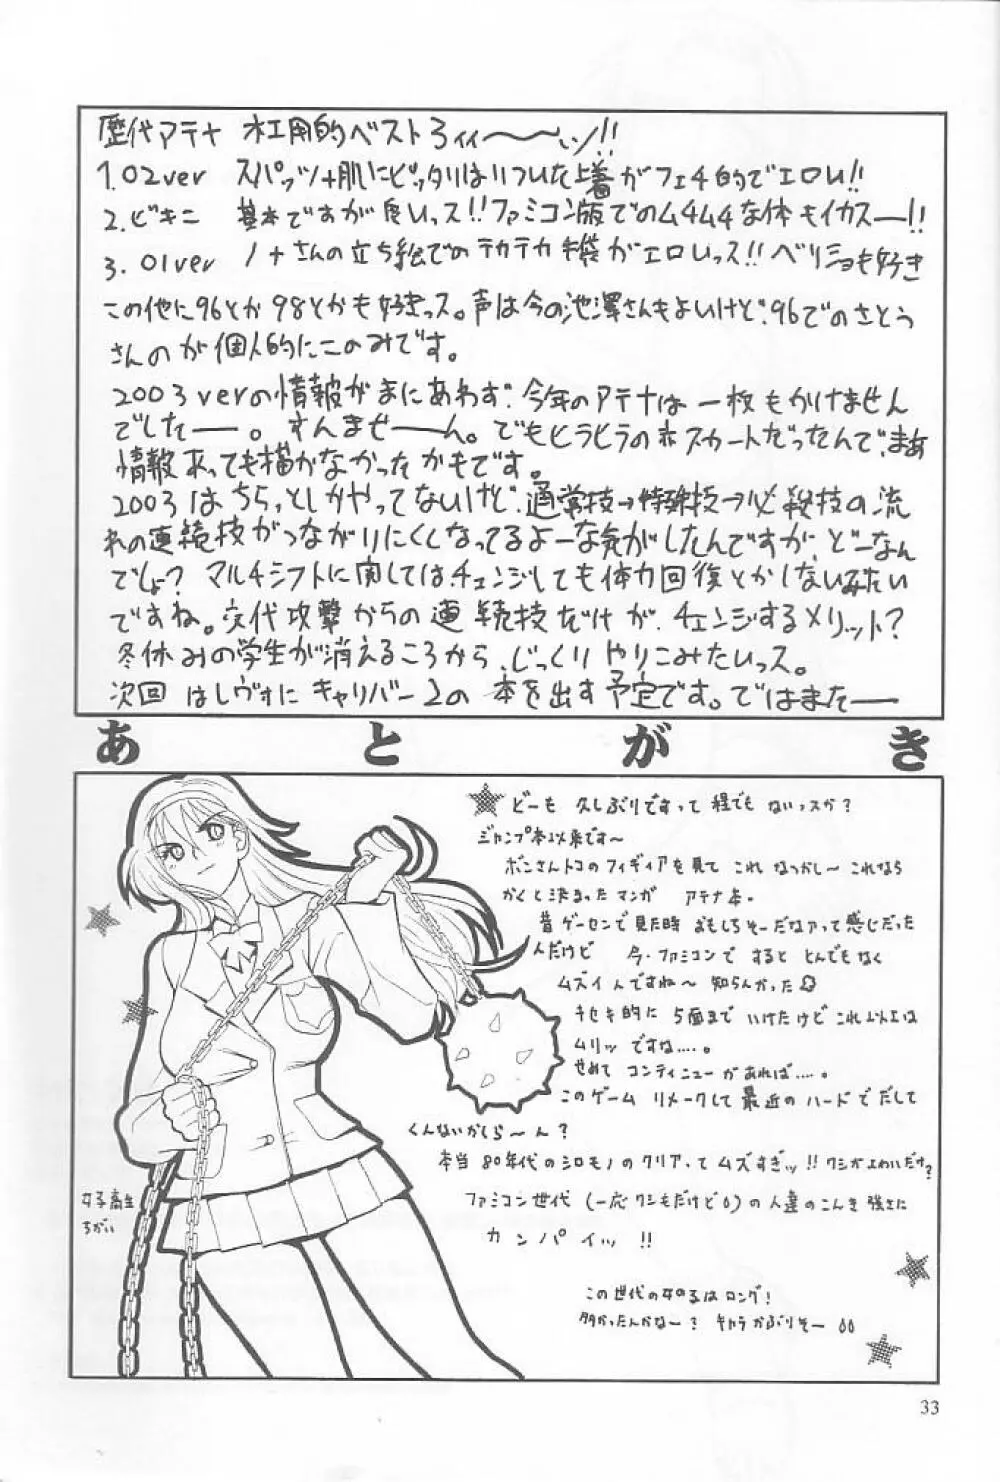 歴代アテナ 木工用的ベスト3ィィ〜〜ーッ!!
1.02ver スパッツ+肌にピッタリはりついた上着がフェチ的でエロい!!
2.ビキニ 基本ですが良いっス!!ファミコン版でのムチムチな体もイカスー!!
3.01ver ノナさんの立ち絵でのテカテカ手袋がエロいっス!!ベリショも好き
この他に96とか98とかも好きっス。声は今の池澤さんもよいけど、96でのさとう
さんのが個人的にこのみです。
2003verの情報がまにあわず、今年のアテナは一枚もかけません
でしたー。すんませーん。でもヒラヒラの赤スカートだったんで、まあ
情報あっても描かなかったかもです。
2003はちらっとしかやってないけど、通常技→特殊技→必殺技の流
れの連続技がつながりにくくなってるよーな気がしたんですが、どーなん
でしょ?マルチシフトに関してはチェンジしても体力回復とかしないみたい
ですね。交代攻撃からの連続技だけが、チェンジするメリット?
冬休みの学生が消えるころから、じっくりやりこみたいっス。
次回はレヴォにキャリバー2の本を出す予定です。ではまたー
あとがき
どーも 久しぶりですって程でもないっスか?
ジャンプ本以来です〜
ボンさんトコのフィギィアを見てこれなつかし〜これなら
かくと決まったマンガ アテナ本。
昔ゲーセンで見た時おもしろそーだなァって感じだった
んだけど 今・ファミコンですると とんでもなく
ムズイんですね〜 知らんかった
キセキ的に5面までいけたけどこれ以上は
ムリッですね.....。
せめてコンティニューがあれば.....。
このゲーム リメークして最近のハードでだして
くんないかしら〜ん?
本当80年代のシロモノのクリアってムズすぎッ!!ワシがよわいだけ?
ファミコン世代(一応ワシもだけど)の人達のこんき強さに
カンパイッ!!
女子高生
ちがい
この世代の女のるはロング!
多かったんかなー?キャラかぶりそー
33